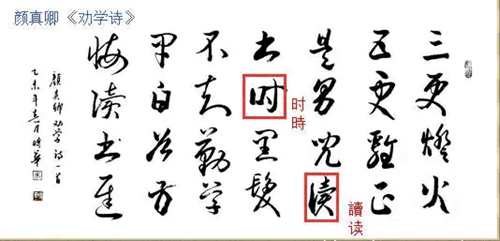 颜真卿《劝学诗》
三更燈火
五更雞正
是男兒读
书时黑髮
不知勤学
早白首方
悔读书迟
颜真卿劝学诗一首
乙未年
时時
讀读